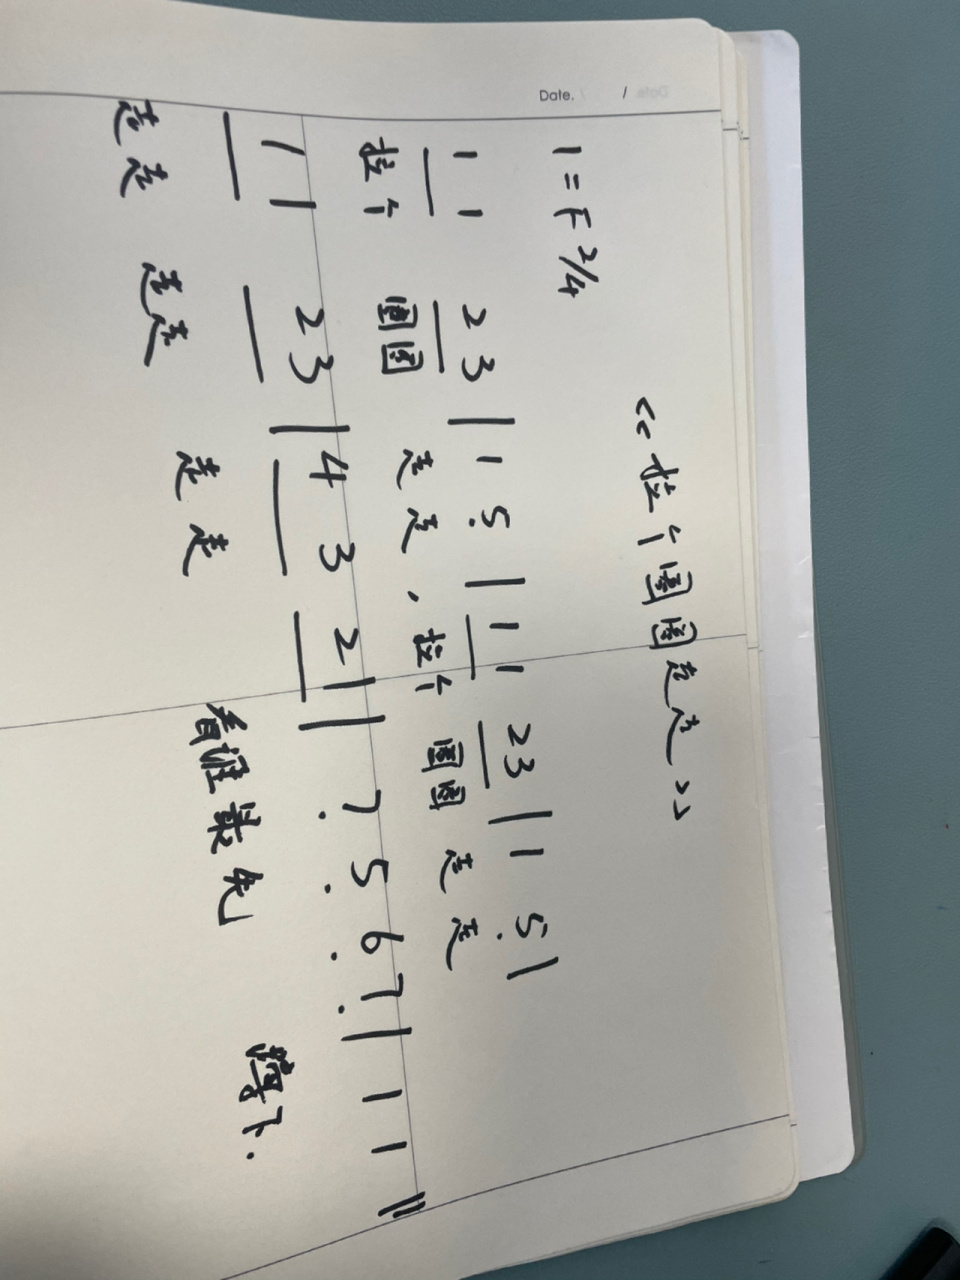 Date. /
《拉个圆圆走走》
1=F 2/4
1 1 2 3 | 1 5 | 1 1 2 3 | 1 5 |
拉个 圆圆 走 走,拉个 圆圆 走 走
1 1 2 3 | 4 3 2 1 | 7 5 6 7 | 1 1 ‖
走走 走走 走 走 看谁最先 蹲下.